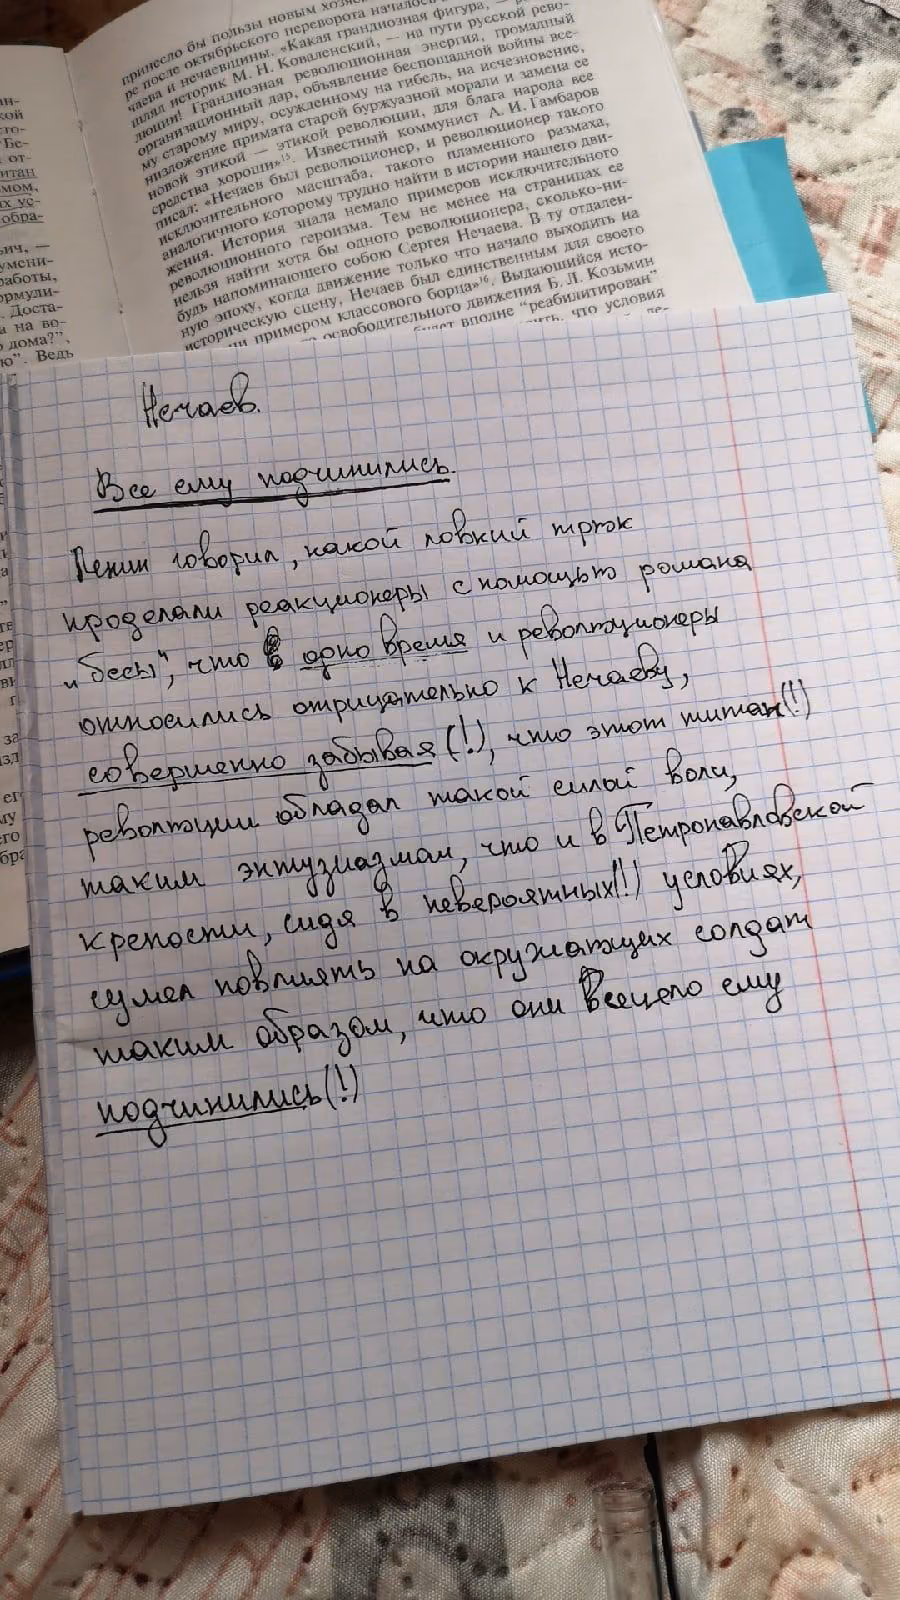 принесло бы пользы новым
ре после октябрьского переворота началось
чаева и нечаевщины. «Какая грандиозная фигура, —
шлял историк М. Н. Коваленский, — на пути русской рево-
люции! Грандиозная революционная энергия, громадный
организационный дар, объявление беспощадной войны все-
му старому миру, осужденному на гибель, на исчезновение,
низложение примата старой буржуазной морали и замена ее
новой этикой — этикой революции, для блага народа все
средства хороши»¹⁵. Известный коммунист А. И. Гамбаров
писал: «Нечаев был революционер, и революционер такого
исключительного масштаба, такого пламенного размаха,
аналогичного которому трудно найти в истории нашего дви-
жения. История знала немало примеров исключительного
революционного героизма. Тем не менее на страницах ее
нельзя найти хотя бы одного революционера, сколько-ни-
будь напоминающего собою Сергея Нечаева. В ту отдален-
ную эпоху, когда движение только что начало выходить на
историческую сцену, Нечаев был единственным для своего
примером классового борца»¹⁶. Выдающийся исто-
освободительного движения Б. П. Козьмин
вполне "реабилитирован"
что условия
Нечаев.
Все ему подчинились.
Ленин говорил, какой ловкий трюк
проделали реакционеры с помощью романа
„Бесы", что в одно время и революционеры
относились отрицательно к Нечаеву,
совершенно забывая (!), что этот титан(!)
революции обладал такой силой воли,
таким энтузиазмом, что и в Петропавловской
крепости, сидя в невероятных(!) условиях,
сумел повлиять на окружающих солдат
таким образом, что они всецело ему
подчинились(!)